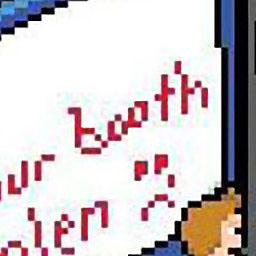 ur booth
olen